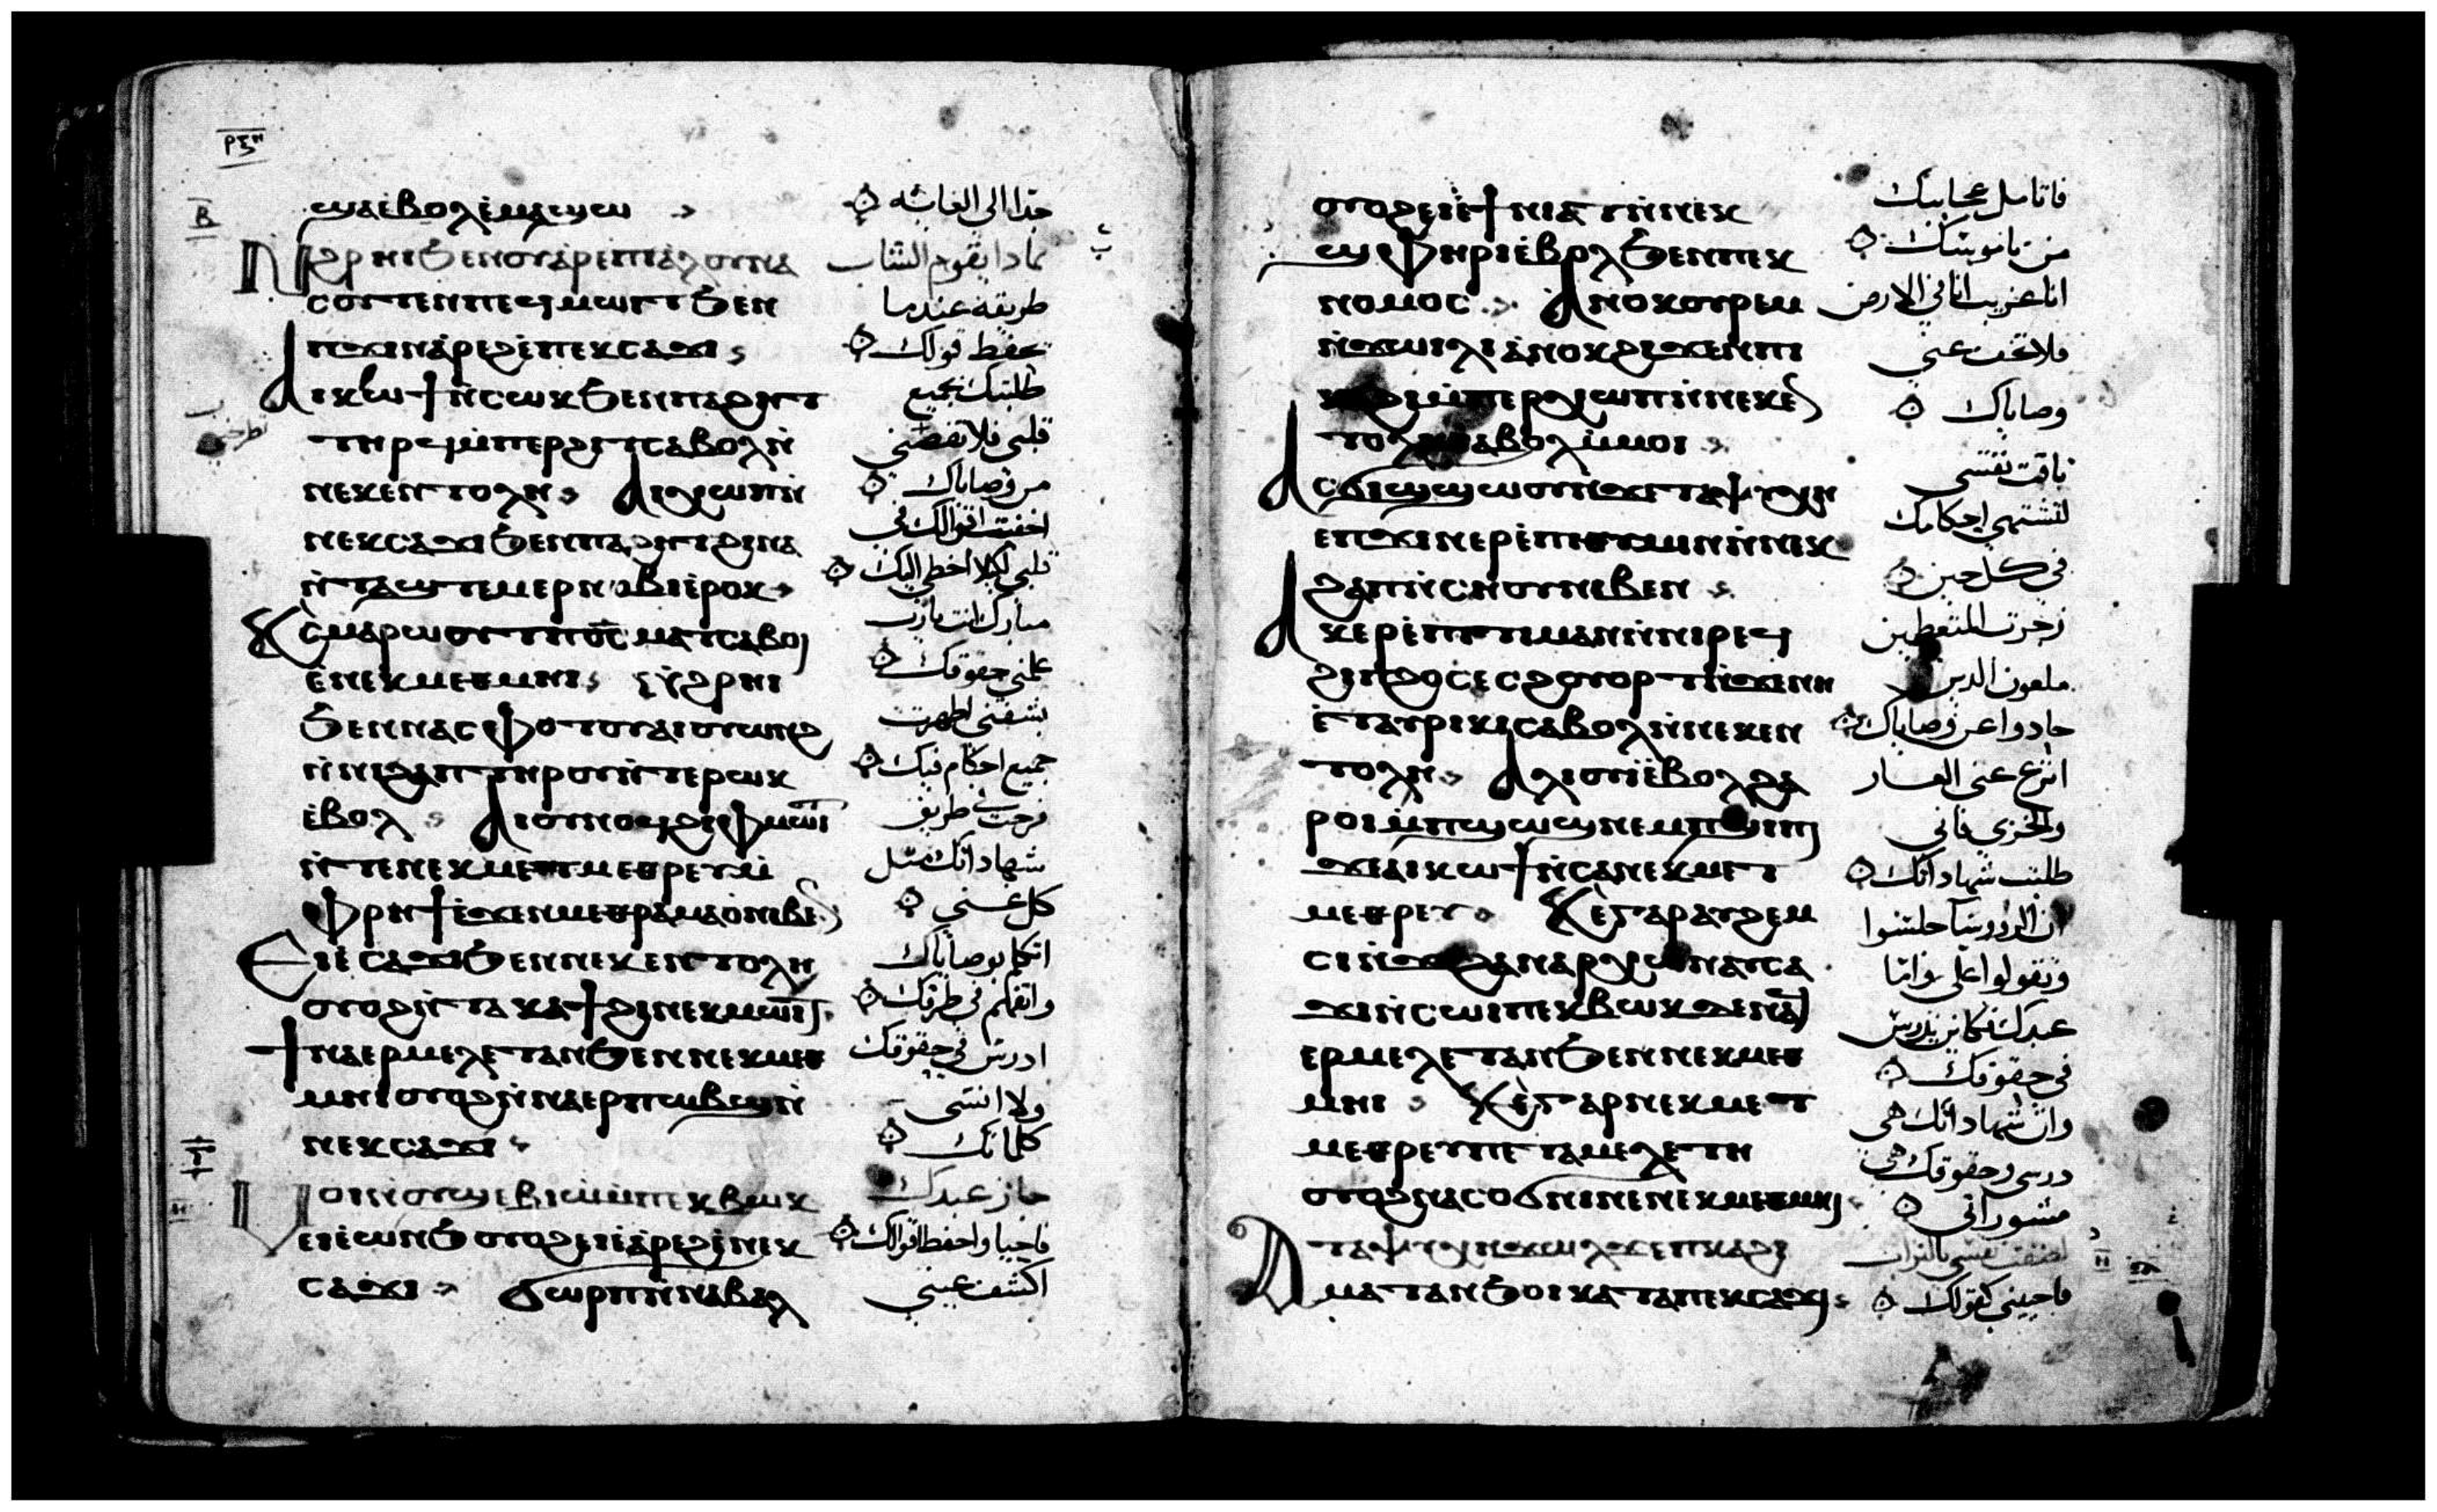 ⲣⲝⲏ
ⲃ
ϣⲁⲉⲃⲟⲗⲉⲙⲁϣⲱ
ⲛϩⲣⲏⲓϧⲉⲛⲟⲩⲁⲣⲉⲡⲓⲁⲗⲟⲩⲛⲁ
ⲥⲟⲩⲧⲉⲛⲡⲉϥⲙⲱⲓⲧϧⲉⲛ
ⲡϫⲓⲛⲁⲣⲉϩⲉⲡⲉⲕⲥⲁϫⲓ
ⲁⲓⲕⲱϯⲛⲥⲱⲕϧⲉⲛⲡⲁϩⲏⲧ
ⲧⲏⲣϥⲙⲡⲉⲣϩⲓⲧⲥⲁⲃⲟⲗⲛ
ⲛⲉⲕⲉⲛⲧⲟⲗⲏ ⲁⲓⲭⲱⲡⲛ
ⲛⲉⲕⲥⲁϫⲓϧⲉⲛⲡⲁϩⲏⲧϩⲓⲛⲁ
ⲛⲧⲁϣⲧⲉⲙⲉⲣⲛⲟⲃⲓⲉⲣⲟⲕ
ⲕⲥⲙⲁⲣⲱⲟⲩⲧⲡ⳪ⲙⲁⲧⲥⲁⲃⲟⲓ
ⲉⲛⲉⲕⲙⲉⲑⲙⲏⲓ ⲛϩⲣⲏⲓ
ϧⲉⲛⲛⲁⲥⲫⲟⲧⲟⲩⲁⲓⲟⲩⲱⲛϩ
ⲛⲛⲓϩⲁⲡⲧⲏⲣⲟⲩⲛⲧⲉⲣⲱⲕ
ⲉⲃⲟⲗ ⲁⲓⲟⲩⲛⲟϥϩⲓⲫⲙⲱⲓⲧ
ⲛⲧⲉⲛⲉⲕⲙⲉⲧⲙⲉⲑⲣⲉⲩⲙ
ⲫⲣⲏϯⲉϫⲉⲛⲙⲉⲧⲣⲁⲙⲁⲟⲛⲓⲃⲉⲛ
ⲉⲓⲉⲥⲁϫⲓϧⲉⲛⲛⲉⲕⲉⲛⲧⲟⲗⲏ
ⲟⲩⲟϩⲛⲧⲁⲕⲁϯϩⲓⲛⲉⲕⲙⲱⲓⲧ
ϯⲛⲁⲉⲣⲙⲉⲗⲉⲧⲁⲛϧⲉⲛⲛⲉⲕⲙⲉⲑ
ⲙⲏⲓⲟⲩⲟϩⲛⲛⲁⲉⲣⲡⲱⲃϣⲛ
ⲛⲉⲕⲥⲁϫⲓ
ⲅ
ⲙⲟⲓⲛⲟⲩϣⲉⲃⲓⲱⲙⲡⲉⲕⲃⲱⲕ
ⲉⲓⲉⲱⲛϧⲟⲩⲟϩⲉⲓⲉⲁⲣⲉϩⲉⲛⲉⲕ
ⲥⲁϫⲓ ϭⲱⲣⲡⲛⲛⲁⲃⲁⲗ
جدا الى الغايه
بماذا يقوم الشاب
طريقه عندما
يحفظ قولك
طلبتك بجميع
قلبي فلا تقصني
من وصاياك
اخفيت اقوالك في
قلبي لكيلا اخطي اليك
مبارك انت يارب
علمني حقوقك
بشفتي اظهرت
جميع احكام فيك
فرحت في طريق
شهاداتك مثل
كل غنى
اتكلم بوصاياك
واتفهم في طرقك
ادرس في حقوقك
ولا انسى
كلماتك
جاز عبدك
فاحيا واحفظ اقوالك
اكشف عيني
ⲟⲩⲟϩⲉⲓⲉϯⲛⲓⲁⲧⲛⲛⲉⲕ
ϣⲫⲏⲣⲓⲉⲃⲟⲗϧⲉⲛⲡⲉⲕ
ⲛⲟⲙⲟⲥ ⲁⲛⲟⲕⲟⲩⲣⲉⲙ
ⲛϫⲱⲓⲗⲓⲁⲛⲟⲕϩⲓϫⲉⲛⲡⲓ
ⲕⲁϩⲓⲙⲡⲉⲣⲭⲱⲡⲛⲛⲉⲕⲉⲛ
ⲧⲟⲗⲏⲥⲁⲃⲟⲗⲙⲙⲟⲓ
ⲁⲥϭⲓϣϣⲱⲟⲩⲛϫⲉⲧⲁⲯⲩⲭⲏ
ⲉⲡϫⲓⲛⲉⲣⲉⲡⲓⲑⲩⲙⲓⲛⲛⲛⲉⲕ
ϩⲁⲡⲛⲥⲏⲟⲩⲛⲓⲃⲉⲛ
ⲁⲕⲉⲣⲉⲡⲓⲧⲓⲙⲁⲛⲛⲛⲓⲣⲉϥ
ϭⲓⲛϩⲟⲥⲉⲥϩⲟⲩⲟⲣⲧⲛϫⲉⲛⲏ
ⲉⲧⲁⲩⲣⲓⲕⲓⲥⲁⲃⲟⲗⲛⲛⲉⲕⲉⲛ
ⲧⲟⲗⲏ ⲁⲗⲓⲟⲩⲓⲉⲃⲟⲗϩⲁ
ⲣⲟⲓⲙⲡϣⲱϣⲛⲉⲙⲡϣⲓⲡⲓ
ϫⲉⲁⲓⲕⲱϯⲛⲥⲁⲛⲉⲕⲙⲉⲧ
ⲙⲉⲑⲣⲉⲩ ⲕⲉⲅⲁⲣⲁⲩϩⲉⲙ
ⲥⲓⲛϫⲉϩⲁⲛⲁⲣⲭⲱⲛⲁⲩⲥⲁ
ϫⲓⲛⲥⲱⲓⲡⲉⲕⲃⲱⲕⲇⲉⲛⲁϥ
ⲉⲣⲙⲉⲗⲉⲧⲁⲛϧⲉⲛⲛⲉⲕⲙⲉⲑ
ⲙⲏⲓ ⲕⲉⲅⲁⲣⲛⲉⲕⲙⲉⲧ
ⲙⲉⲑⲣⲉⲩⲡⲉⲧⲁⲙⲉⲗⲉⲧⲏ
ⲟⲩⲟϩⲛⲁⲥⲟϭⲛⲓⲛⲉⲛⲉⲕⲙⲉⲑⲙⲏⲓ
ⲁⲧⲁⲯⲩⲭⲏϫⲱⲗϫⲉⲡⲕⲁϩⲓ
ⲙⲁⲧⲁⲛϧⲟⲓⲕⲁⲧⲁⲡⲉⲕⲥⲁϫⲓ
فاتامل عجايبك
من ناموسك
انا غريب انا في الارض
فلا تخف عني
وصاياك
تاقت نفسي
لتشتهي احكامك
في كل حين
زجرت المتعظمين
ملعون الذين
حادوا عن وصاياك
انزع عني العار
والخزي فاني
طلبت شهاداتك
ان الروسا جلسوا
وتقولوا علي واما
عبدك فكان يدرس
في حقوقك
وان شهاداتك هي
درسي وحقوقك هي
مشوراتي
لصقت نفسي بالتراب
فاحييني كقولك
ⲇ